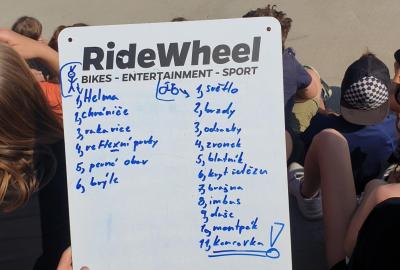 RideWheel
BIKES - ENTERTAINMENT - SPORT
1, Helma
2, chrániče
3, rukavice
4, reflexní prvky
5, pevné obuv
6, brýle
1, světlo
2, brzdy
3, odrazky
4, zvonek
5, blatník
6, kryt řetězu
7, brašna
8, imbus
9, duše
10, montpák
11, koncovka!